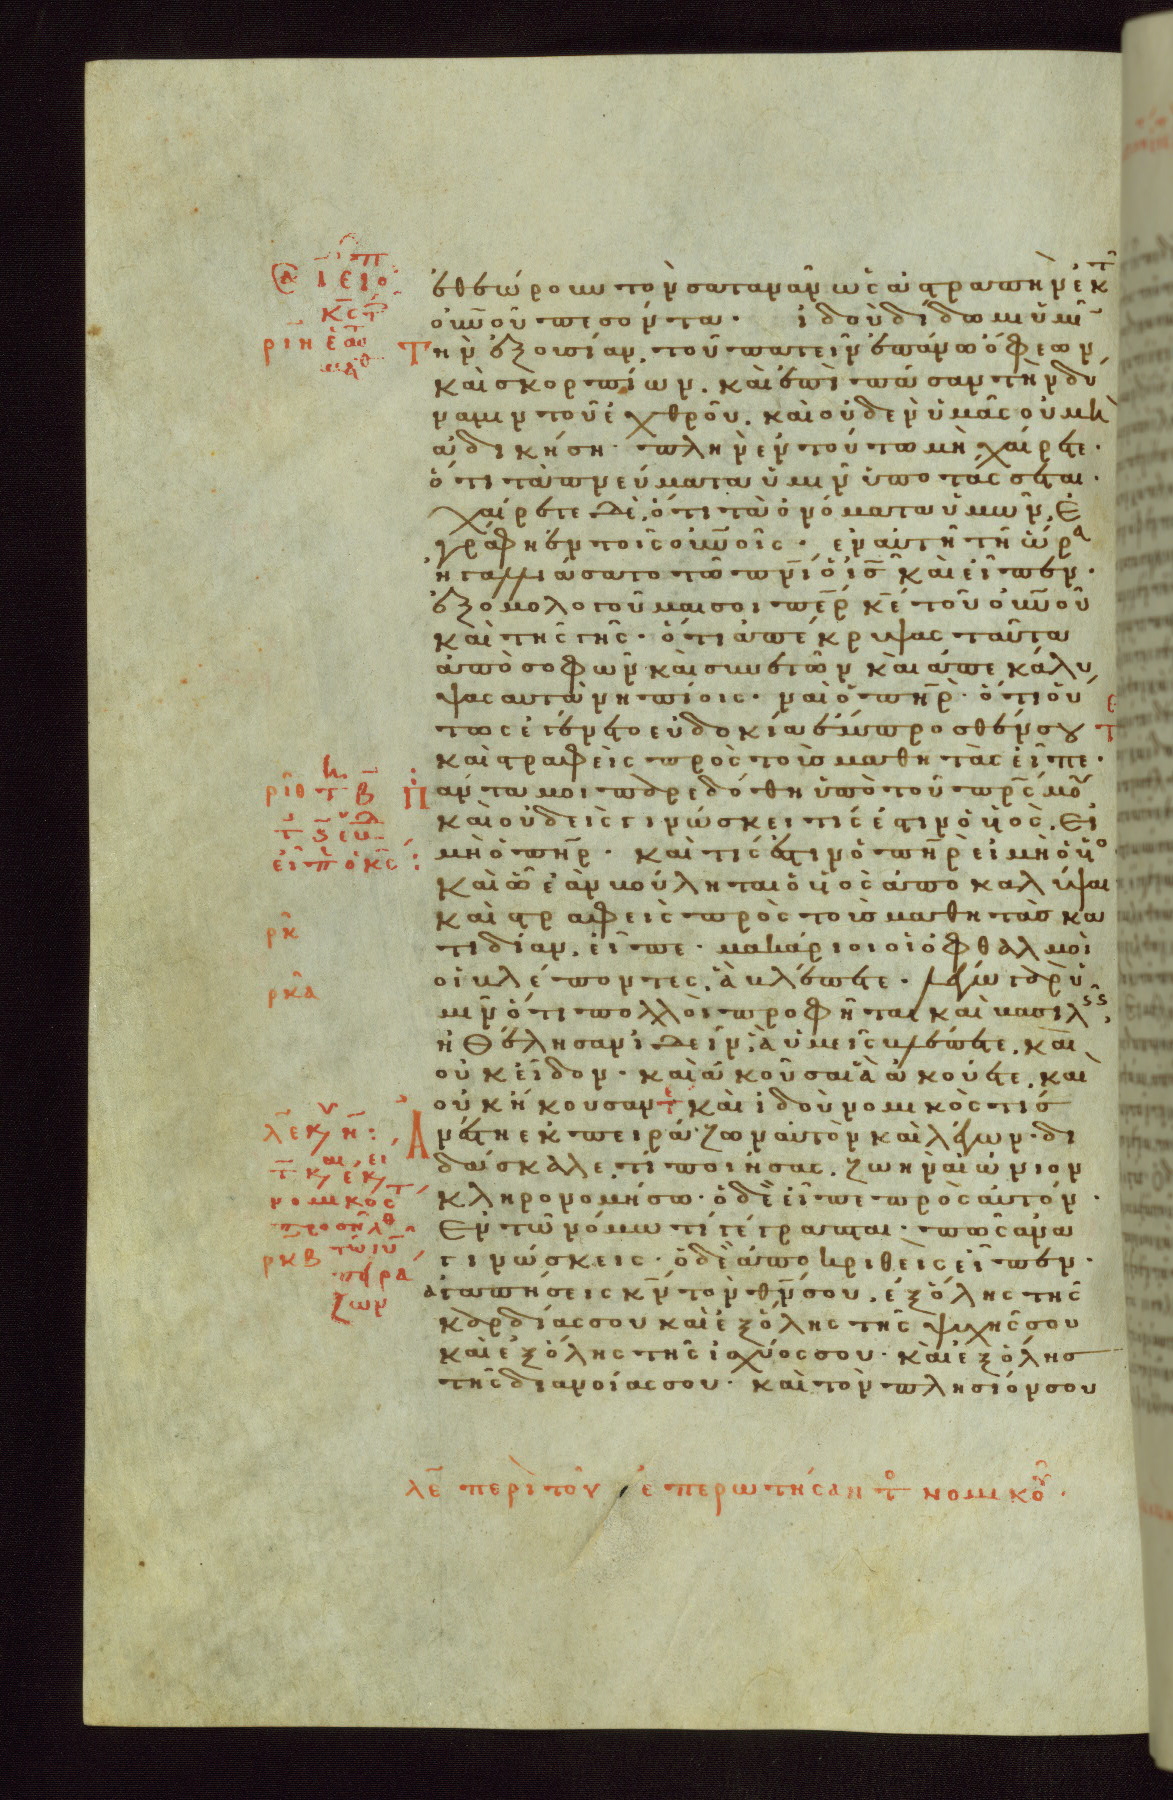 ἐθεώρουν τὸν σατανᾶν ὡς ἀστραπὴν ἐκ τ
οὐνοῦ πεσόντα· ἰδοὺ δίδωμι ὑμῖν
Τὴν ἐξουσίαν τοῦ πατεῖν ἐπάνω ὄφεων
καὶ σκορπίων. καὶ ἐπὶ πᾶσαν τὴν δύ
ναμιν τοῦ ἐχθροῦ. καὶ οὐδὲν ὑμᾶς οὐ μὴ
ἀδικήση· πλὴν ἐν τούτω μὴ χαίρετε·
ὅτι τὰ πνεύματα ὑμῖν ὑποτάσσεται·
χαίρετε δὲ, ὅτι τὰ ὀνόματα ὑμῶν, ἐ
γράφη ἐν τοῖς οὐνοῖς· ἐν αὐτῆ τῆ ὥρα
ἠγαλλιάσατο τῶ πνι ὁ ις καὶ εἶπεν·
ἐξομολογοῦμαι σοι περ κε τοῦ οὐνοῦ
καὶ τῆς γῆς· ὅτι ἀπέκρυψας ταῦτα
ἀπὸ σοφῶν καὶ συνετῶν καὶ ἀπεκάλυ
ψας αυτὰ νηπίοις· ναὶ ὁ πηρ· ὅτι οὕ
τως ἐγένετο εὐδοκία ἔμπροσθέν σου
καὶ στραφεὶς πρὸς τοὺς μαθητὰς εἶπε·
Πάντα μοι παρεδόθη ὑπὸ τοῦ πρς μου
καὶ οὐδεὶς γινώσκει τίς ἐστιν ὁ υἱὸς. Εἰ
μὴ ὁ πηρ· καὶ τίς ἐστιν ὁ πηρ εἰ μὴ ὁ υἱο
καὶ ὧ ἐὰν βούληται ὁ υἱὸς ἀποκαλύψαι
καὶ στραφεὶς πρὸς τοὺς μαθητὰς κα
τιδίαν, εἶπε· μακάριοι οἱ ὀφθαλμοὶ
οἱ βλέποντες, ἃ βλέπετε· λέγω γὰρ ὑ
μῖν ὅτι πολλοὶ προφῆται καὶ βασιλεῖς
ἠθέλησαν ἰδεῖν, ἃ ὑμεῖς βλέπετε, καὶ
οὐκ εἶδον· καὶ ἀκοῦσαι ἃ ἀκούετε, καὶ
οὐκ ἤκουσαν καὶ ἰδοὺ νομικὸς τίς
Ἀνέστη ἐκπειράζων αὐτὸν καὶ λέγων· δι
δάσκαλε, τί ποιήσας, ζωὴν αἰώνιον
κληρονομήσω· ὁ δὲ εἶπε πρὸς αὐτόν·
Ἐν τῶ νόμω τί γέγραπται· πῶς ἀνα
γινώσκεις· ὁ δὲ ἀποκριθεὶς εἶπεν·
ἀγαπήσεις κν τὸν θν σου, ἐξ ὅλης τῆς
καρδίας σου καὶ ἐξ ὅλης τῆς ψυχῆς σου
καὶ ἐξ ὅλης τῆς ἰσχύος σου· καὶ ἐξ ὅλης
τῆς διανοίας σου· καὶ τὸν πλησίον σου
ριη
ριθ
εἶπ ὁ κς
ρκ
ρκα
νομικός
ρκβ
πειρά
ζων
λε περὶ τοῦ ἐπερωτήσαντο νομικοῦ·